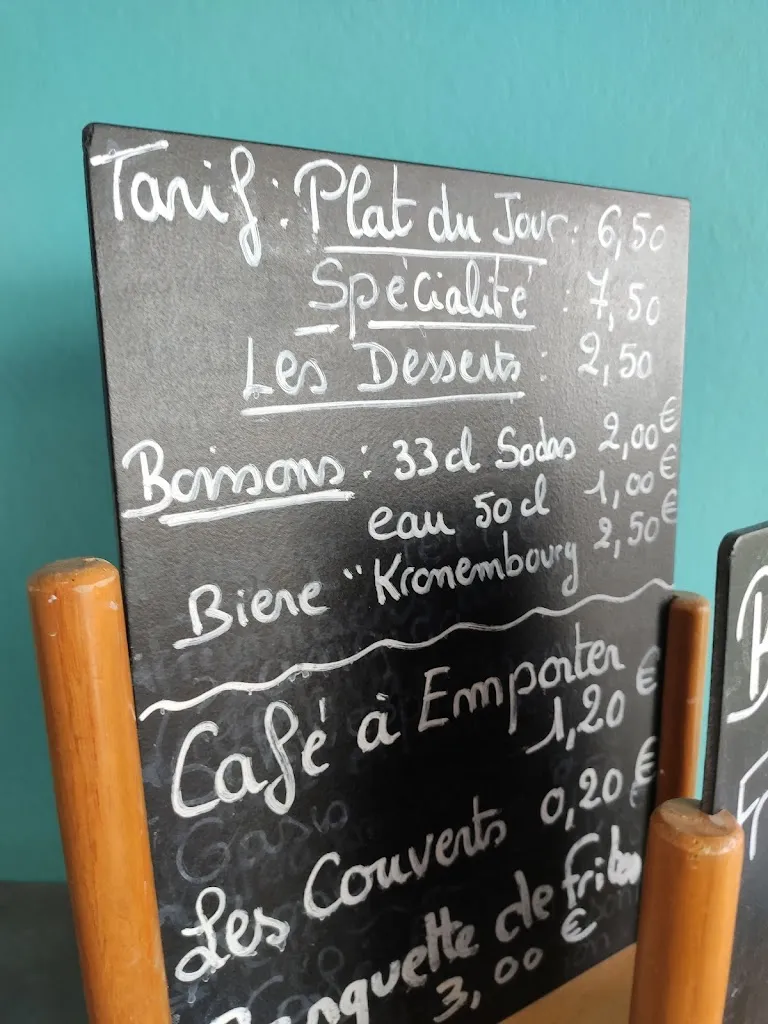 Tarif : Plat du Jour : 6,50
Spécialité : 7,50
Les Desserts : 2,50
Boissons : 33cl Sodas 2,00€
eau 50cl 1,00€
Biere "Kronembourg 2,50€
Café à Emporter
1,20€
Les Couverts 0,20€
Barquette de frites
3,00€